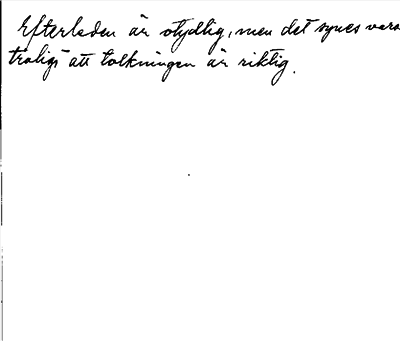 Efterleden är otydlig, men det synes vara
troligt att tolkningen är riktig.